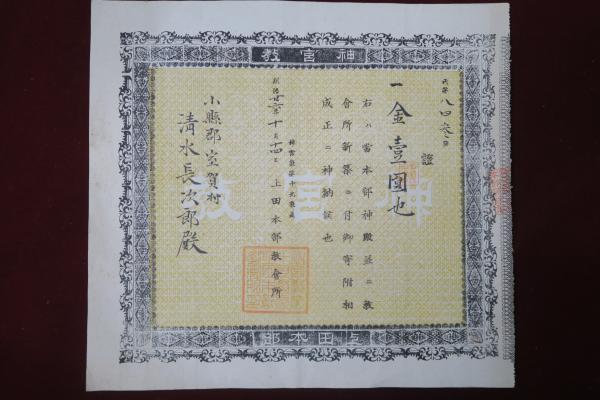 神宮教
天第八四参号
證
一金壹圓也
右ハ當本部神殿並ニ教
會所新築ニ付御寄附相
成正ニ神納候也
神宮教第十九教區
明治廿六年十月十四日 上田本部教會所
小縣郡室賀村
清水長次郎殿
神宮教
上田本部